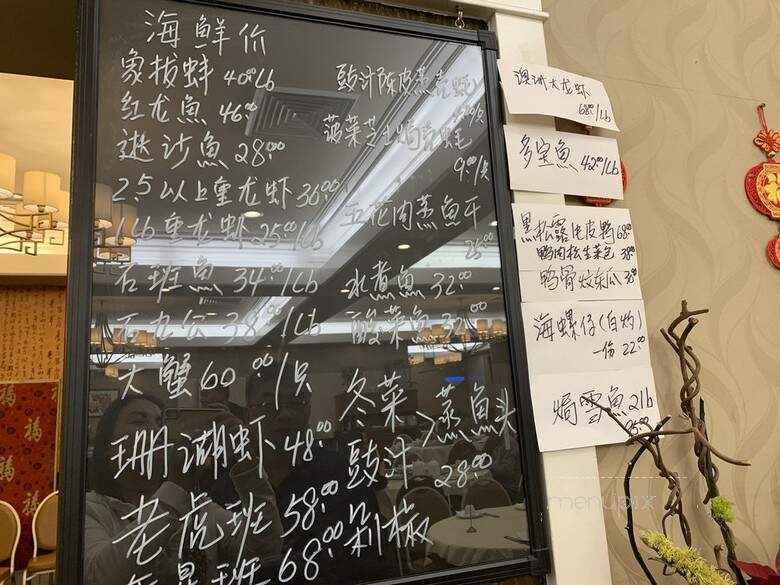 海鮮价
象拔蚌 40.00/Lb
红龙魚 46.00
遊沙魚 28.00
2.5以上重龙虾 36.00
1Lb重龙虾 25.00/Lb
石班魚 34.00/Lb
石九公 38.00/Lb
大蟹 60.00/只
珊湖虾 48.00
老虎班 58.00
星班 68.00
豉汁陈皮蒸
菠菜芝士焗
9.00/只
五花肉蒸魚干
25.00
水煮魚 32.00
酸菜魚 32.00
冬菜
豉汁 >蒸魚头
剁椒 28.00
澳洲大龙虾
68.00/Lb
多宝魚 42.00/Lb
黑松露片皮鸭 68.00
鸭肉松生菜包 38.00
鸭骨炆东瓜 38.00
海螺仔(白灼)
一份 22.00
焗雪魚 2lb
menupix
福
福
福